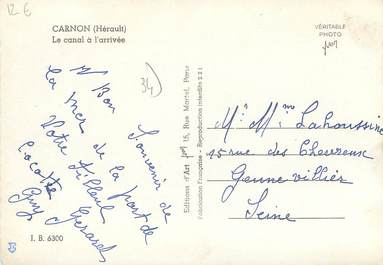 12 €
CARNON (Hérault)
Le canal à l'arrivée
VÉRITABLE
PHOTO
34
Bon
Souvenir de
La mer de la part de
Votre filleul Gérard
Cocotte
Guy
Mr Mme Lahoussine
rue des Chevreux
Gennevilliers
Seine
Editions d'Art 15, Rue Martel, Paris
Fabrication Française - Reproduction interdite 551
I. B. 6300